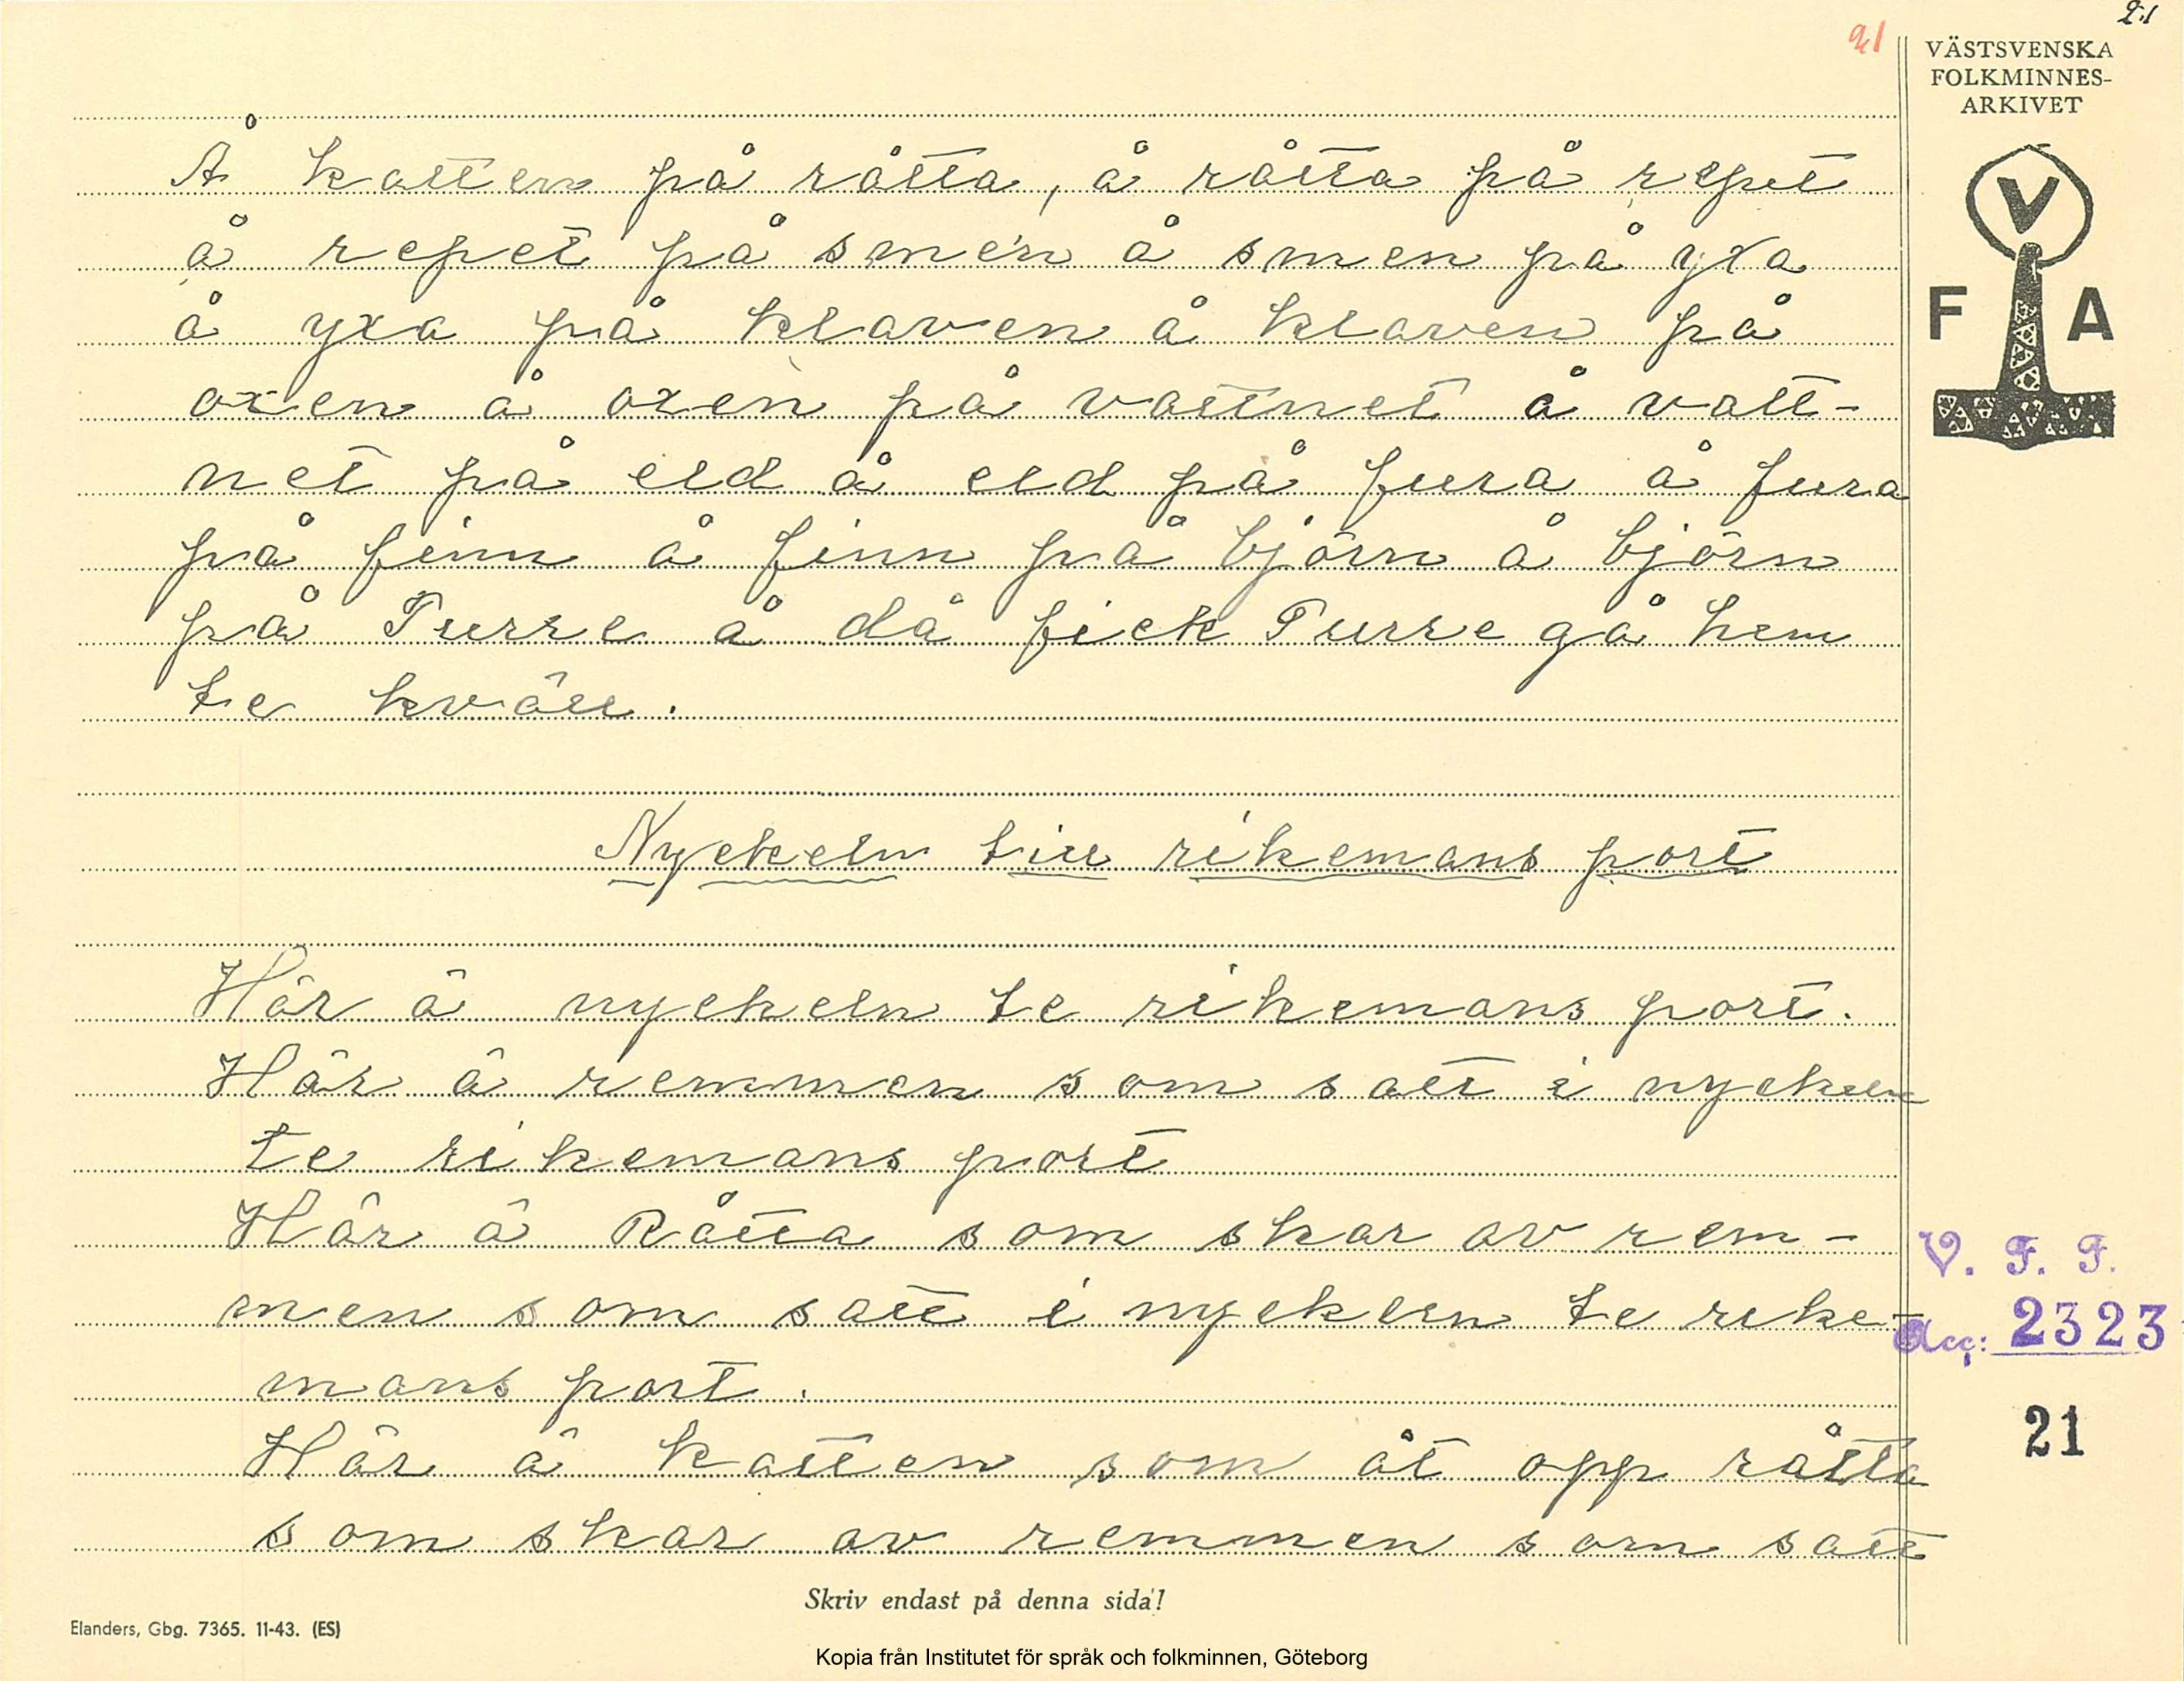 21
21
VÄSTSVENSKA
FOLKMINNES-
ARKIVET
V
F A
Å katten på råtta, å råtta på repet
å repet på smén å smen på yxa
å yxa på klaven å klaven på
oxen å oxen på vattnet å vatt-
net på eld å eld på fura å fura
på finn å finn på björn å björn
på Purre å då fick Purre gå hem
te kväll.
Nyckeln till rikemans port
Här ä nyckeln te rikemans port.
Här ä remmen som satt i nyckeln
te rikemans port
Här ä Råtta som skar av rem-
men som satt i nyckeln te rike-
mans port.
Här ä katten som åt opp råtta
som skar av remmen som satt
V. F. F.
Acc: 2323
21
Skriv endast på denna sida!
Elanders, Gbg. 7365. 11-43. (ES)
Kopia från Institutet för språk och folkminnen, Göteborg